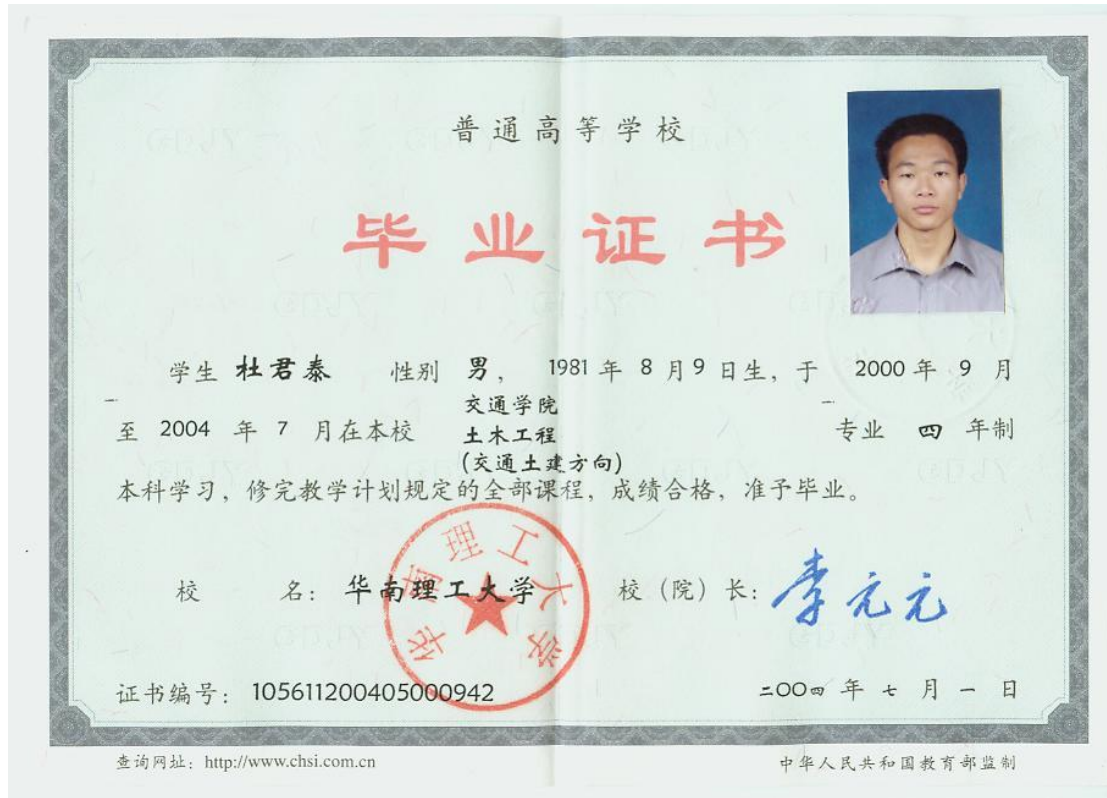 普通高等学校
毕业证书
学生 杜君泰 性别 男， 1981 年 8 月 9 日生，于 2000 年 9 月
至 2004 年 7 月在本校 交通学院
土木工程
(交通土建方向) 专业 四 年制
本科学习，修完教学计划规定的全部课程，成绩合格，准予毕业。
华南理工大学
校 名：华南理工大学 校（院）长：李元元
证书编号：105611200405000942 二〇〇四 年 七 月 一 日
查询网址：http://www.chsi.com.cn 中华人民共和国教育部监制